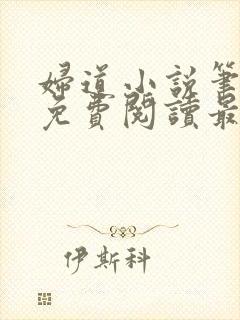 婦道小說筆
免費閱讀最
伊斯科